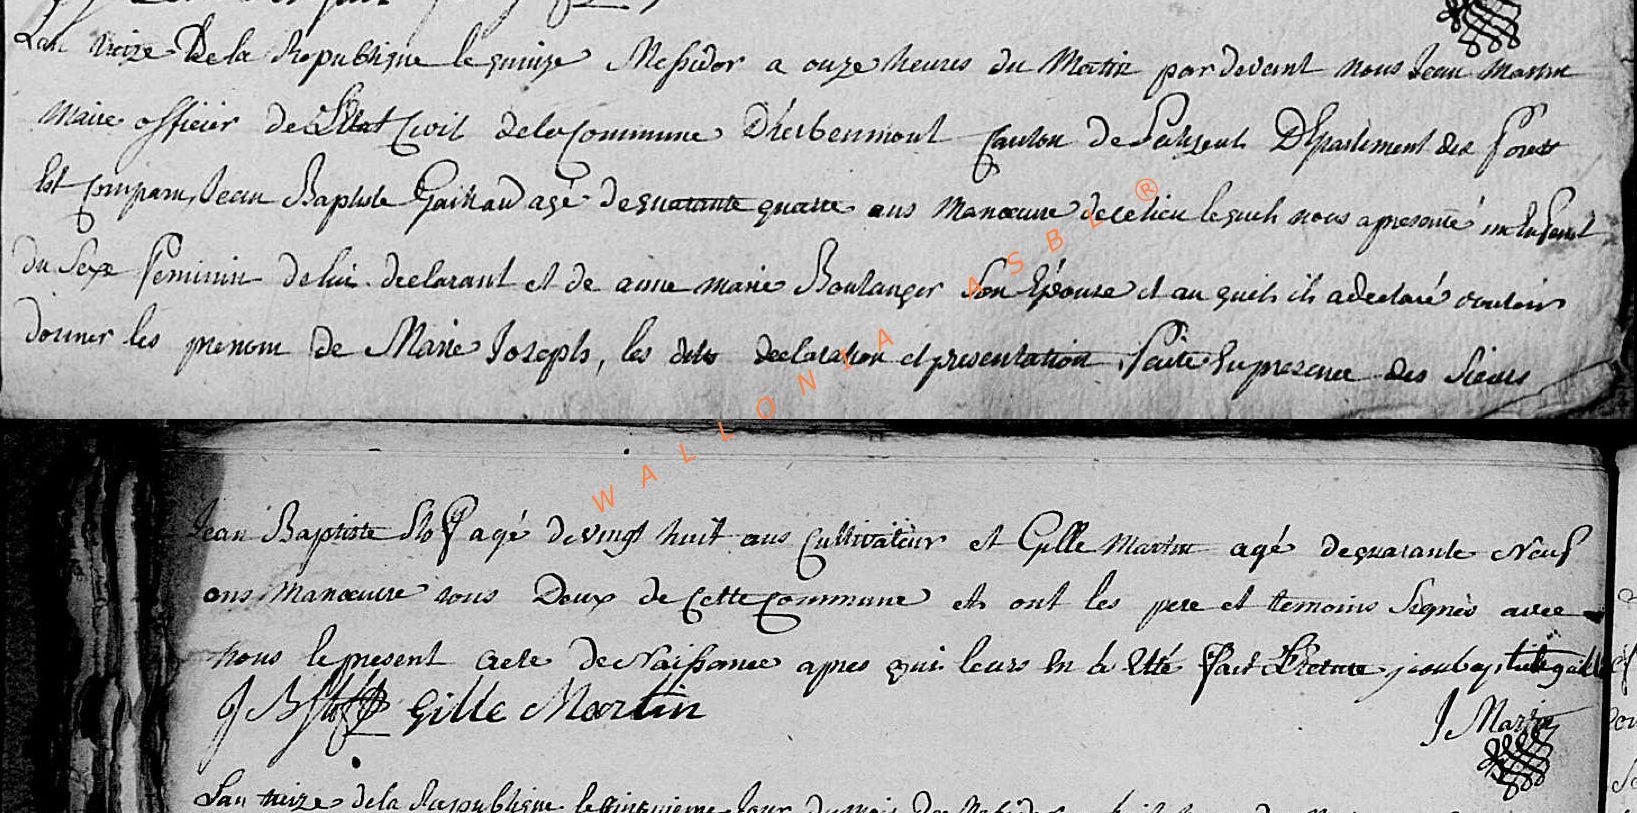 Lan treize De la Republique le quinze Messidor a onze heures du Matin par devant nous Jean Martin
Maire officier de L'Etat Civil de la Commune D'herbeumont Canton de Paliseul Département des Forets
Est Comparu, Jean Baptiste Gaillard agé de quarante quatre ans Manœuvre de ce lieu lequel nous a presenté un Enfant
du Sexe Feminin de lui declarant et de anne marie Boulanger Son Epouse et au quels ils a declaré vouloir
donner les prenom de Marie Joseph, les dits declaration et presentation faite En presence des Sieurs
WALLONIA ASBL ®
Jean Baptiste Slof agé de vingt huit ans Cultivateur et Gille Martin agé de quarante Neuf
ans Manœuvre tous Deux de Cette Commune et ont les pere et temoins Signés avec
nous le present acte de Naissance apres qui leurs En à Eté fait Lecture
Gille Martin
J Martin
Lan treize de la Republique le cinquieme Jour du mois de